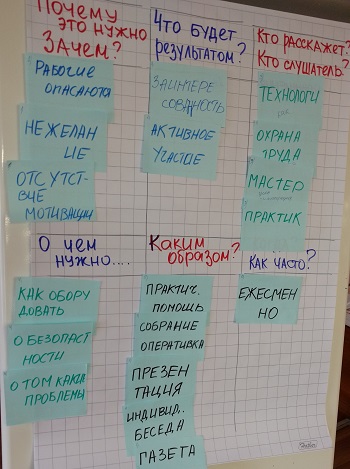 Почему
это нужно
Зачем?
РАБОЧИЕ
ОПАСАЮТСЯ
НЕЖЕЛАН
ИЕ
ОТСУТСТ-
ВИЕ
МОТИВАЦИИ
Что будет
результатом?
ЗАИНТЕРЕ
СОВАННОСТЬ
АКТИВНОЕ
УЧАСТИЕ
Кто расскажет?
Кто слушатель?
ТЕХНОЛОГИ
ОХРАНА
ТРУДА
МАСТЕР
ПРАКТИК
О чем
нужно....
КАК ОБОРУ
ДОВАТЬ
О БЕЗОПАСТ
НОСТИ
О ТОМ КАКИЕ
ПРОБЛЕМЫ
Каким
образом?
ПРАКТИЧ.
ПОМОЩЬ
СОБРАНИЕ
ОПЕРАТИВКА
ПРЕЗЕН
ТАЦИЯ
ИНДИВИД..
БЕСЕДА
ГАЗЕТА
КАК ЧАСТО?
ЕЖЕСМЕН
НО